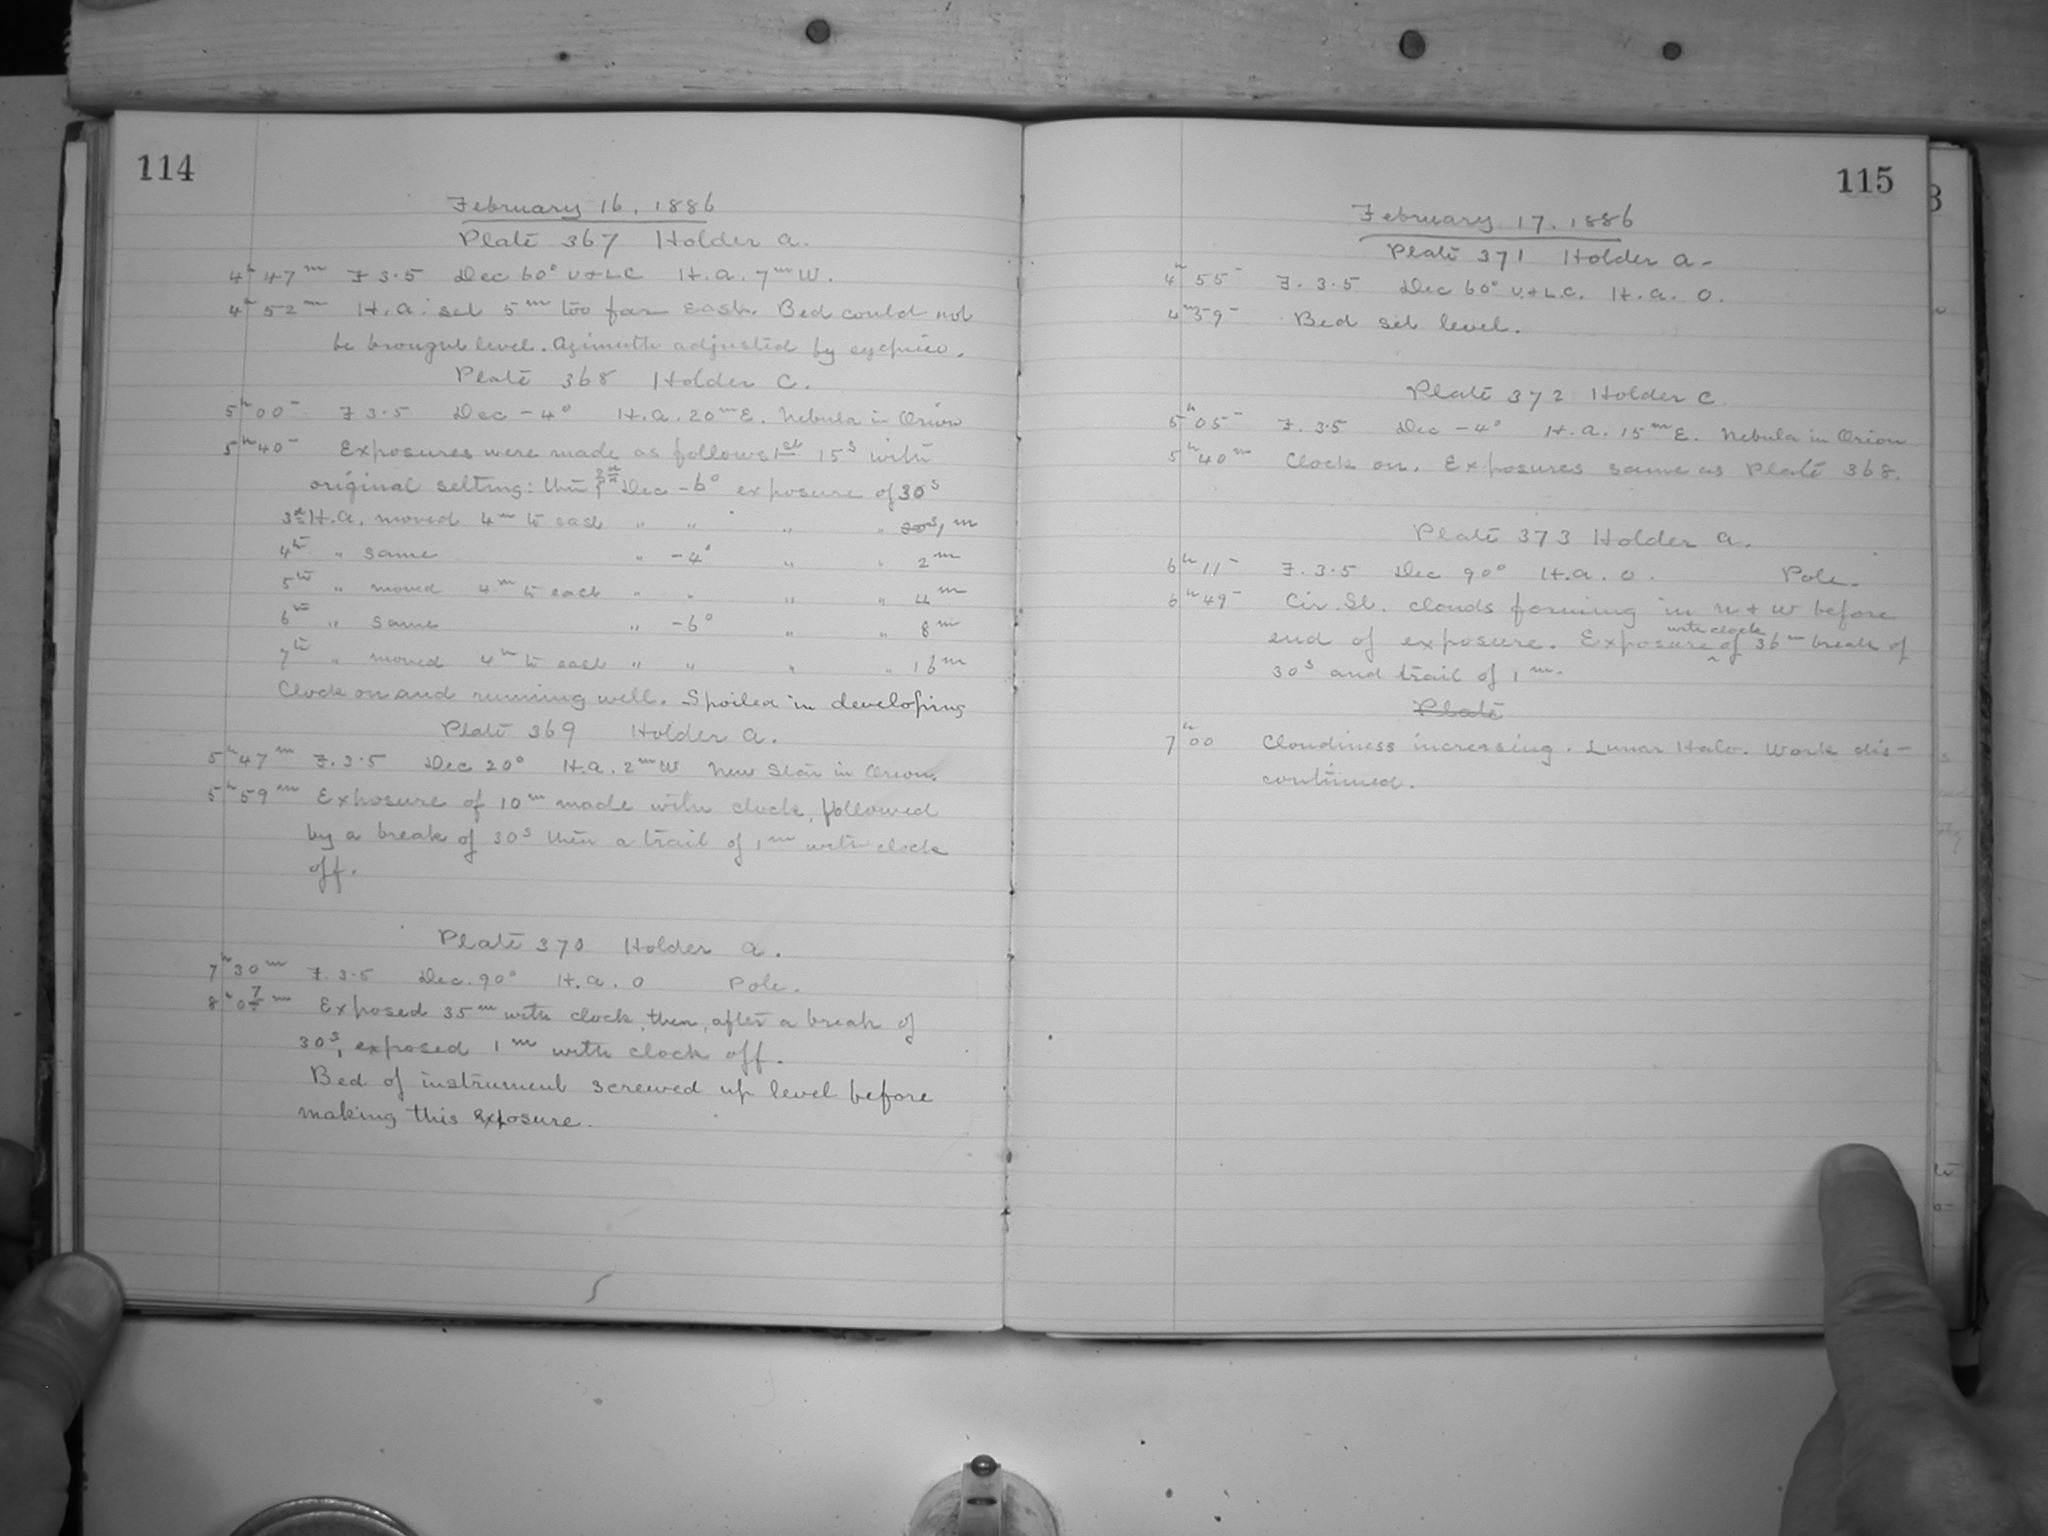 114
February 16, 1886
Plate 367 Holder a.
4h 47m F 3.5 Dec 60° U+LC H.a. 7m W.
4h 52m H.a. set 5m too far east. Bed could not
be brought level. Azimuth adjusted by eyepiece.
Plate 368 Holder C.
5h 00m F 3.5 Dec -4° H.a. 20m E. Nebula in Orion
5h 40m Exposures were made as follows 1st 15s with
original setting: then 2d Dec -6° exposure of 30s
3d H.a. moved 4m to east " " " " 30s 1m
4th " same " -4° " " 2m
5th " moved 4m to east " " " " 4m
6th " same " -6° " " 8m
7th " moved 4m to east " " " " 16m
Clock on and running well. Spoiled in developing
Plate 369 Holder a.
5h 47m F. 3.5 Dec 20° H.a. 2m W New Star in Orion.
5h 59m Exposure of 10m made with clock, followed
by a break of 30s then a trail of 1m with clock
off.
Plate 370 Holder a.
7h 30m F. 3.5 Dec. 90° H.a. 0 Pole.
8h 07m Exposed 35m with clock, then, after a break of
30s, exposed 1m with clock off.
Bed of instrument screwed up level before
making this exposure.
115
February 17, 1886
Plate 371 Holder a.
4h 55m F. 3.5 Dec 60° U.+L.C. H.a. 0.
4 59m Bed set level.
Plate 372 Holder C
5h 05m F. 3.5 Dec -4° H.a. 15m E. Nebula in Orion
5h 40m Clock on. Exposures same as Plate 368.
Plate 373 Holder a.
6h 11m F. 3.5 Dec 90° H.a. 0. Pole.
6h 49m Cir. St. clouds forming in N + W before
end of exposure. Exposure with clock of 36m break of
30s and trail of 1m.
Plate
7h 00 Cloudiness increasing. Lunar Halo. Work dis-
continued.